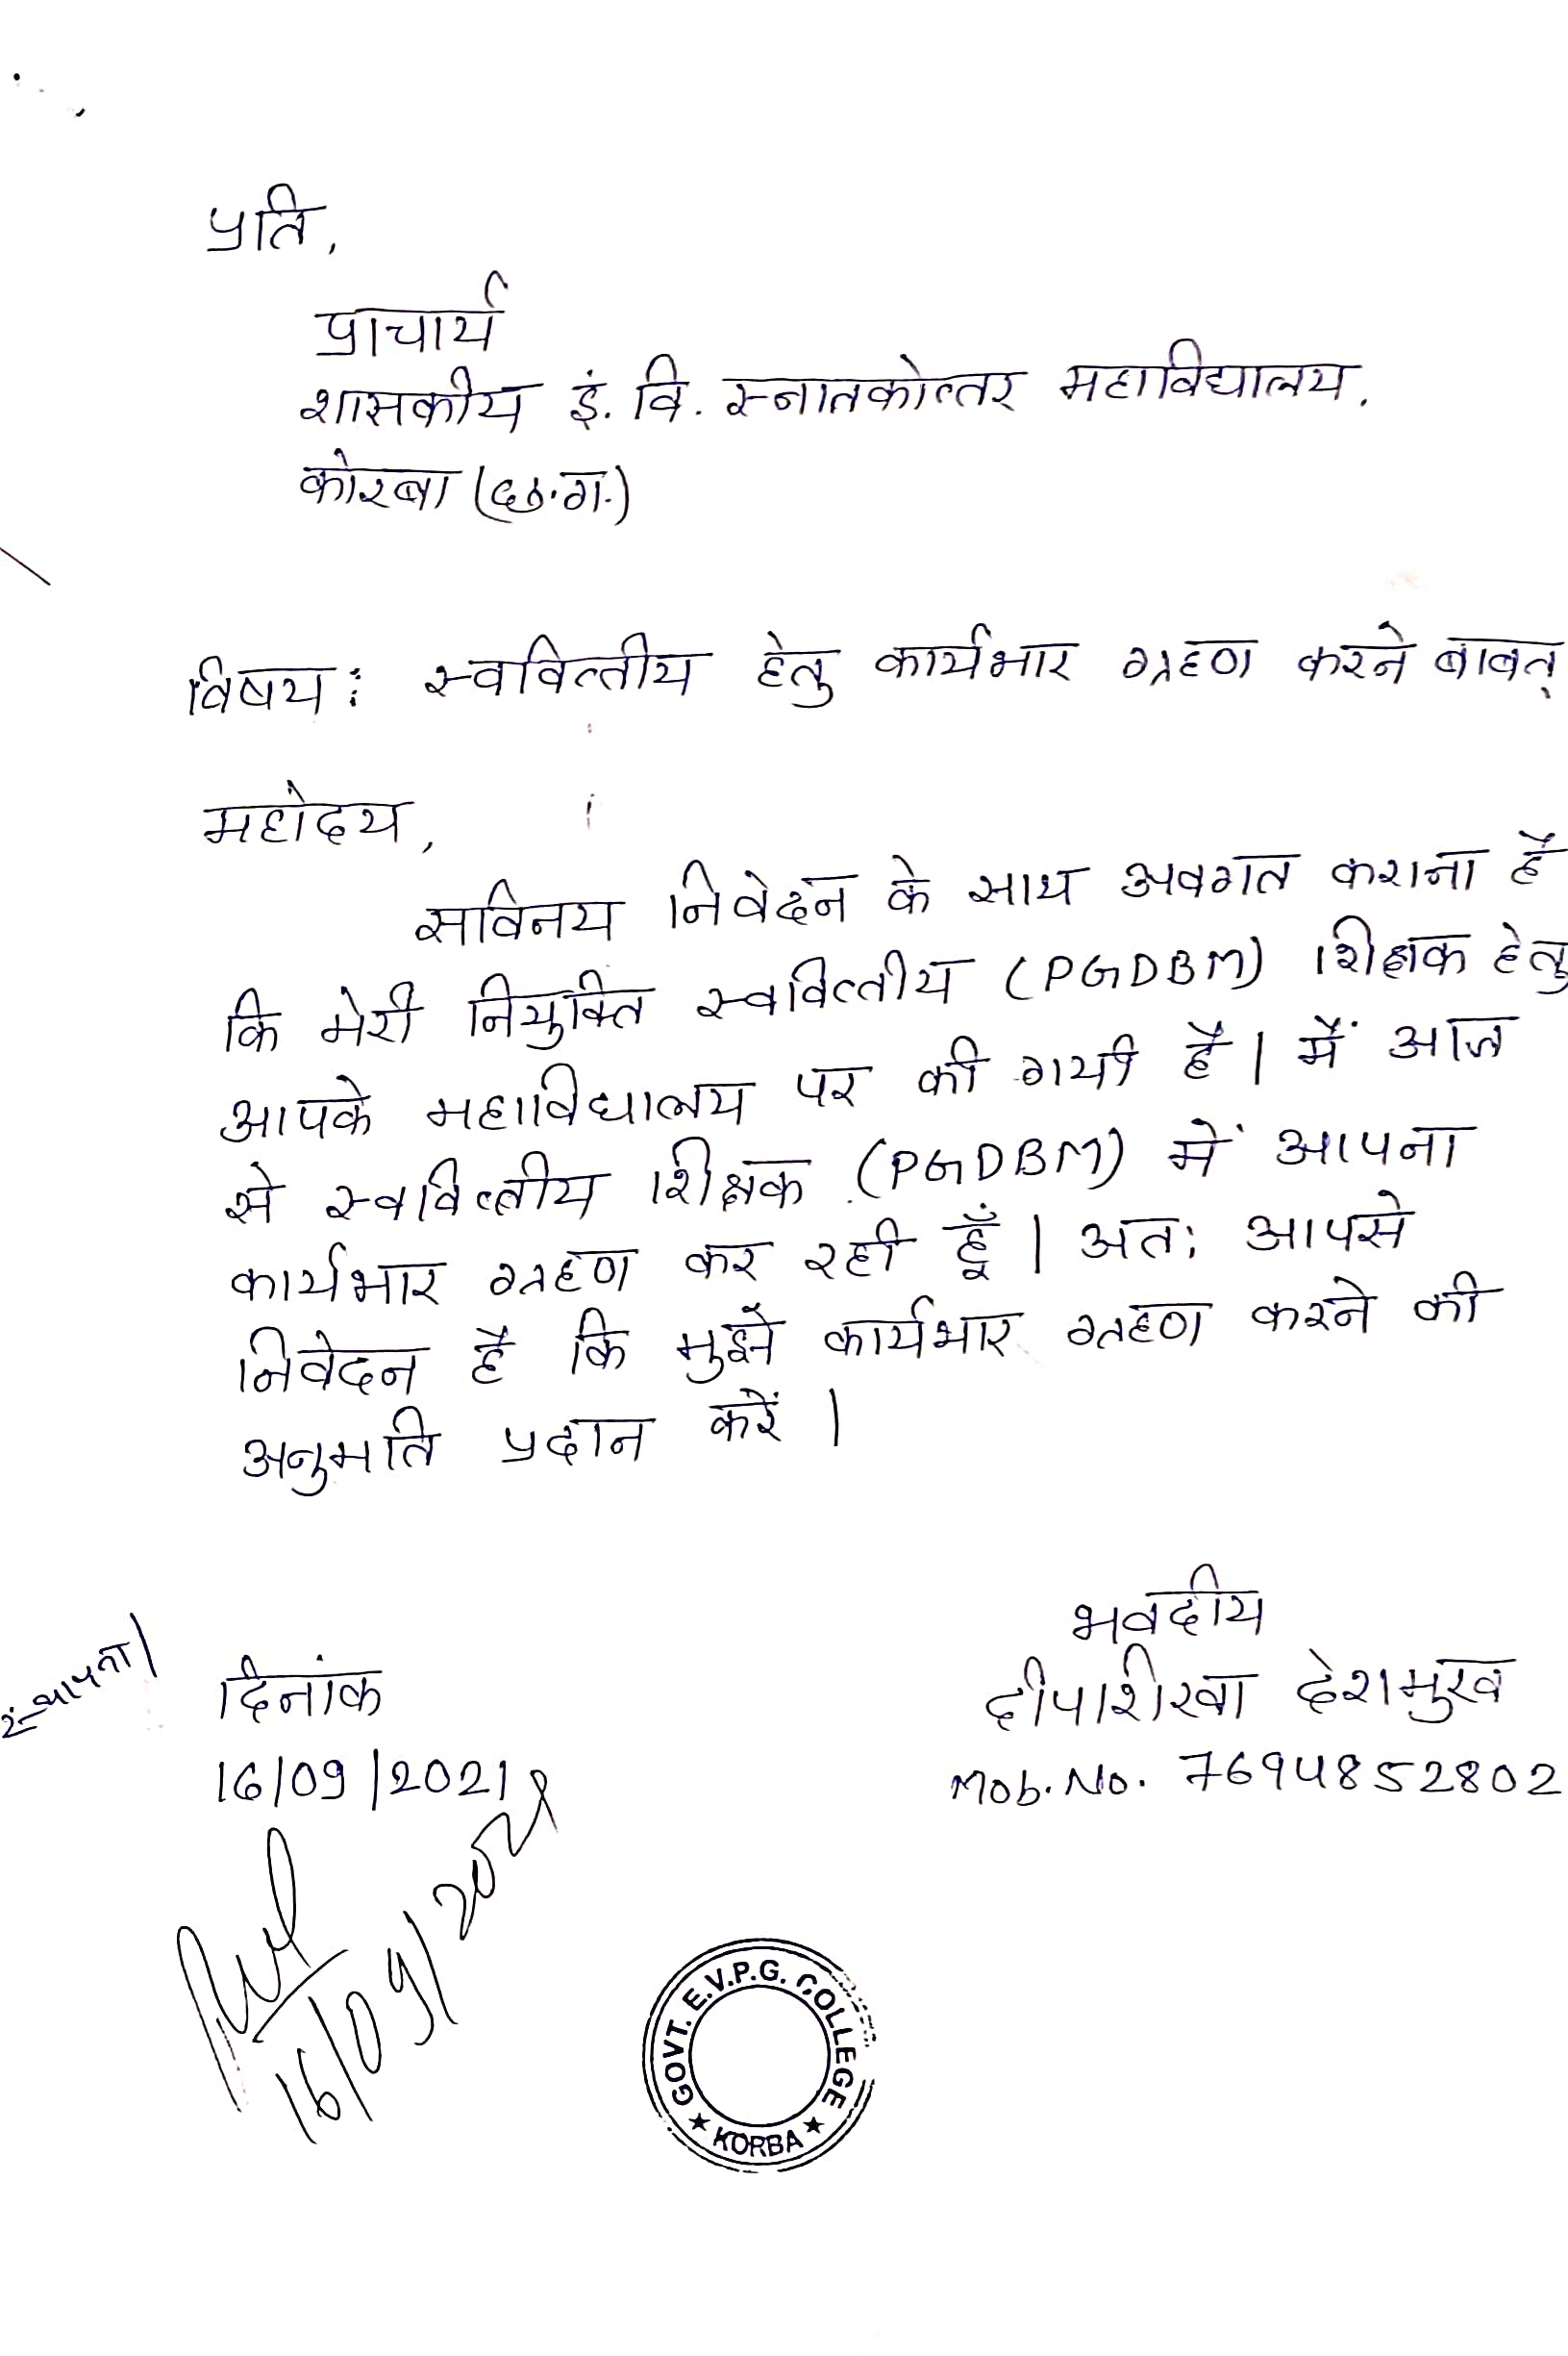 प्रति,
प्राचार्य
शासकीय इं. वि. स्नातकोत्तर महाविद्यालय.
कोरबा (छ.ग.)
विषय : स्ववित्तीय हेतु कार्यभार ग्रहण करने बाबत्
महोदय,
सविनय निवेदन के साथ अवगत कराना है
कि मेरी नियुक्ति स्ववित्तीय (PGDBM) शिक्षक हेतु
आपके महाविद्यालय पर की गयी है। मैं आज
से स्ववित्तीय शिक्षक (PGDBM) में आपना
कार्यभार ग्रहण कर रही हूँ। अतः आपसे
निवेदन है कि मुझे कार्यभार ग्रहण करने की
अनुमति प्रदान करें।
भवदीय
स्थापना।
दिनांक
दीपशिखा देशमुख
16/09/2021
Mob. No. 7694852802
16/09/2021
GOVT. E.V.P.G. COLLEGE
★ KORBA ★